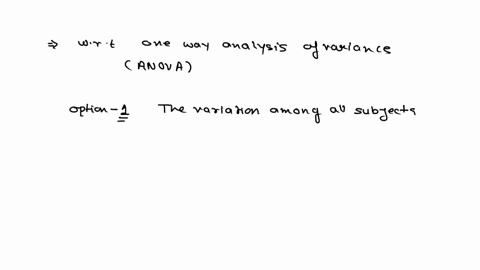 ⇒ w.r.t one way analysis of variance
(ANOVA)
option-1 The variation among all subjects